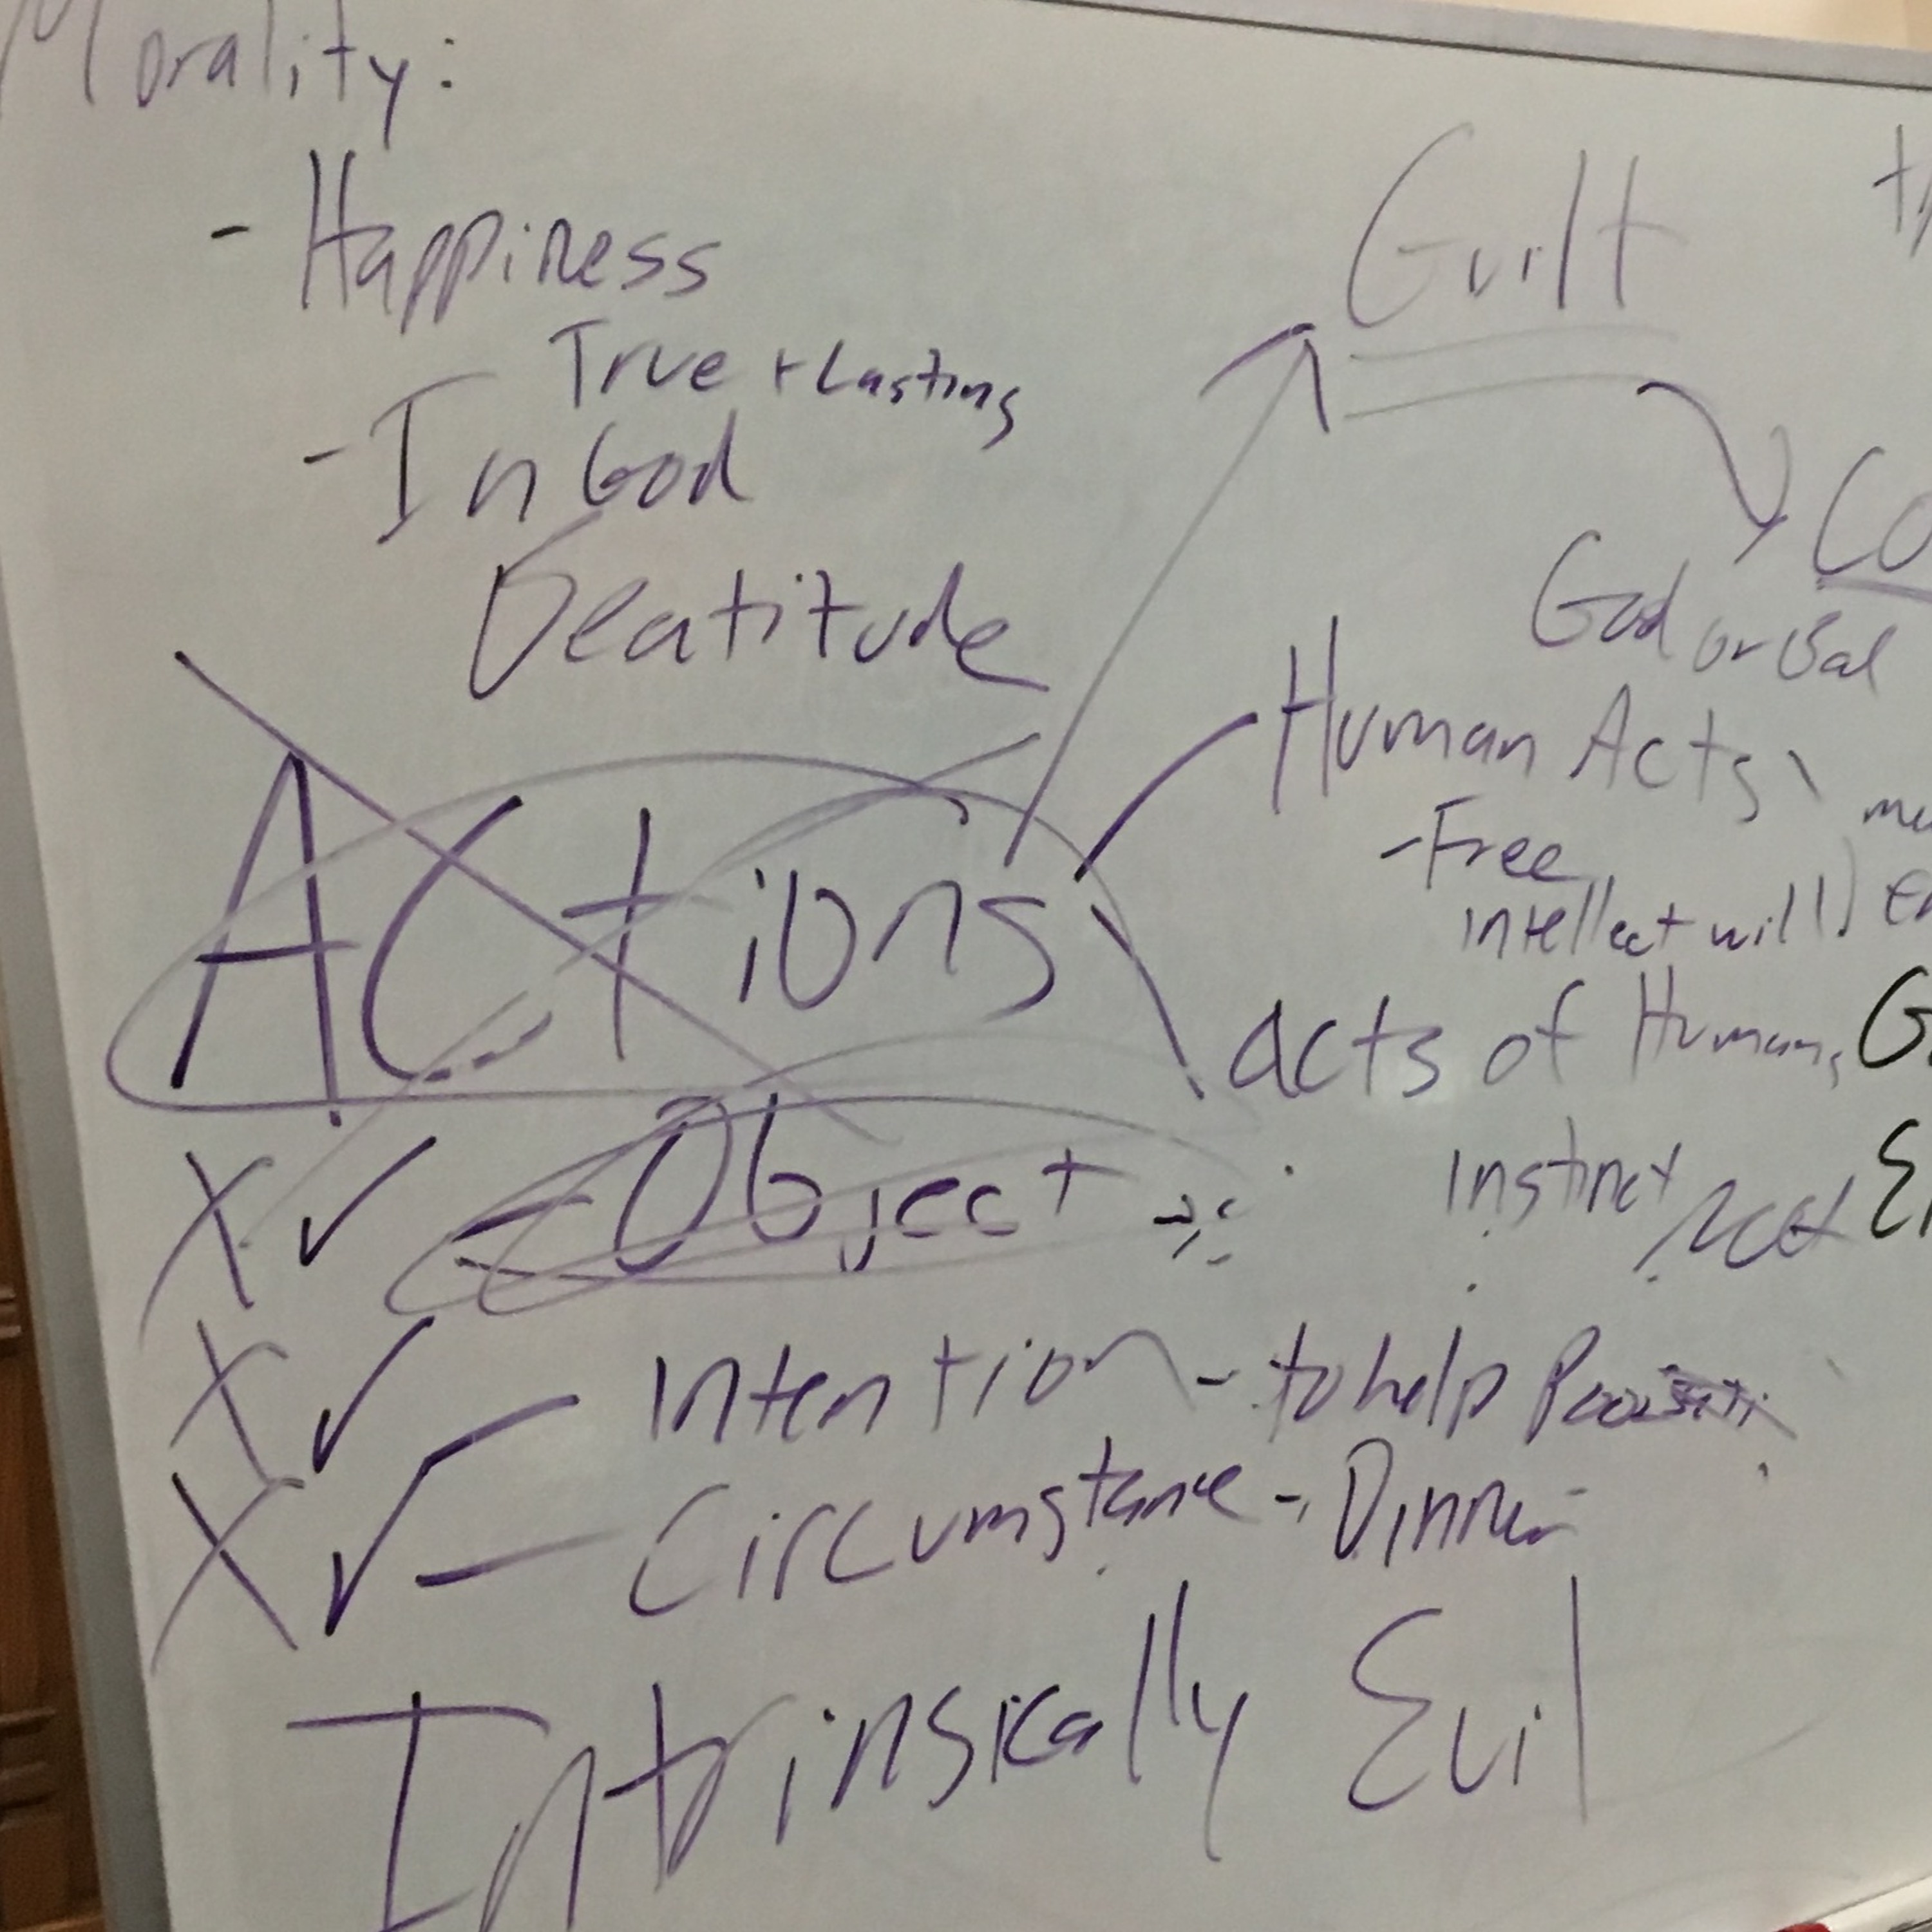 Morality:
- Happiness
True + Lasting
- In God
Beatitude
Guilt
God or Bal
Actions
Human Acts
- Free
intellect will)
acts of Humans
Instinct
Object
Intention - to help
Circumstance - Dinner
Intrinsically Evil